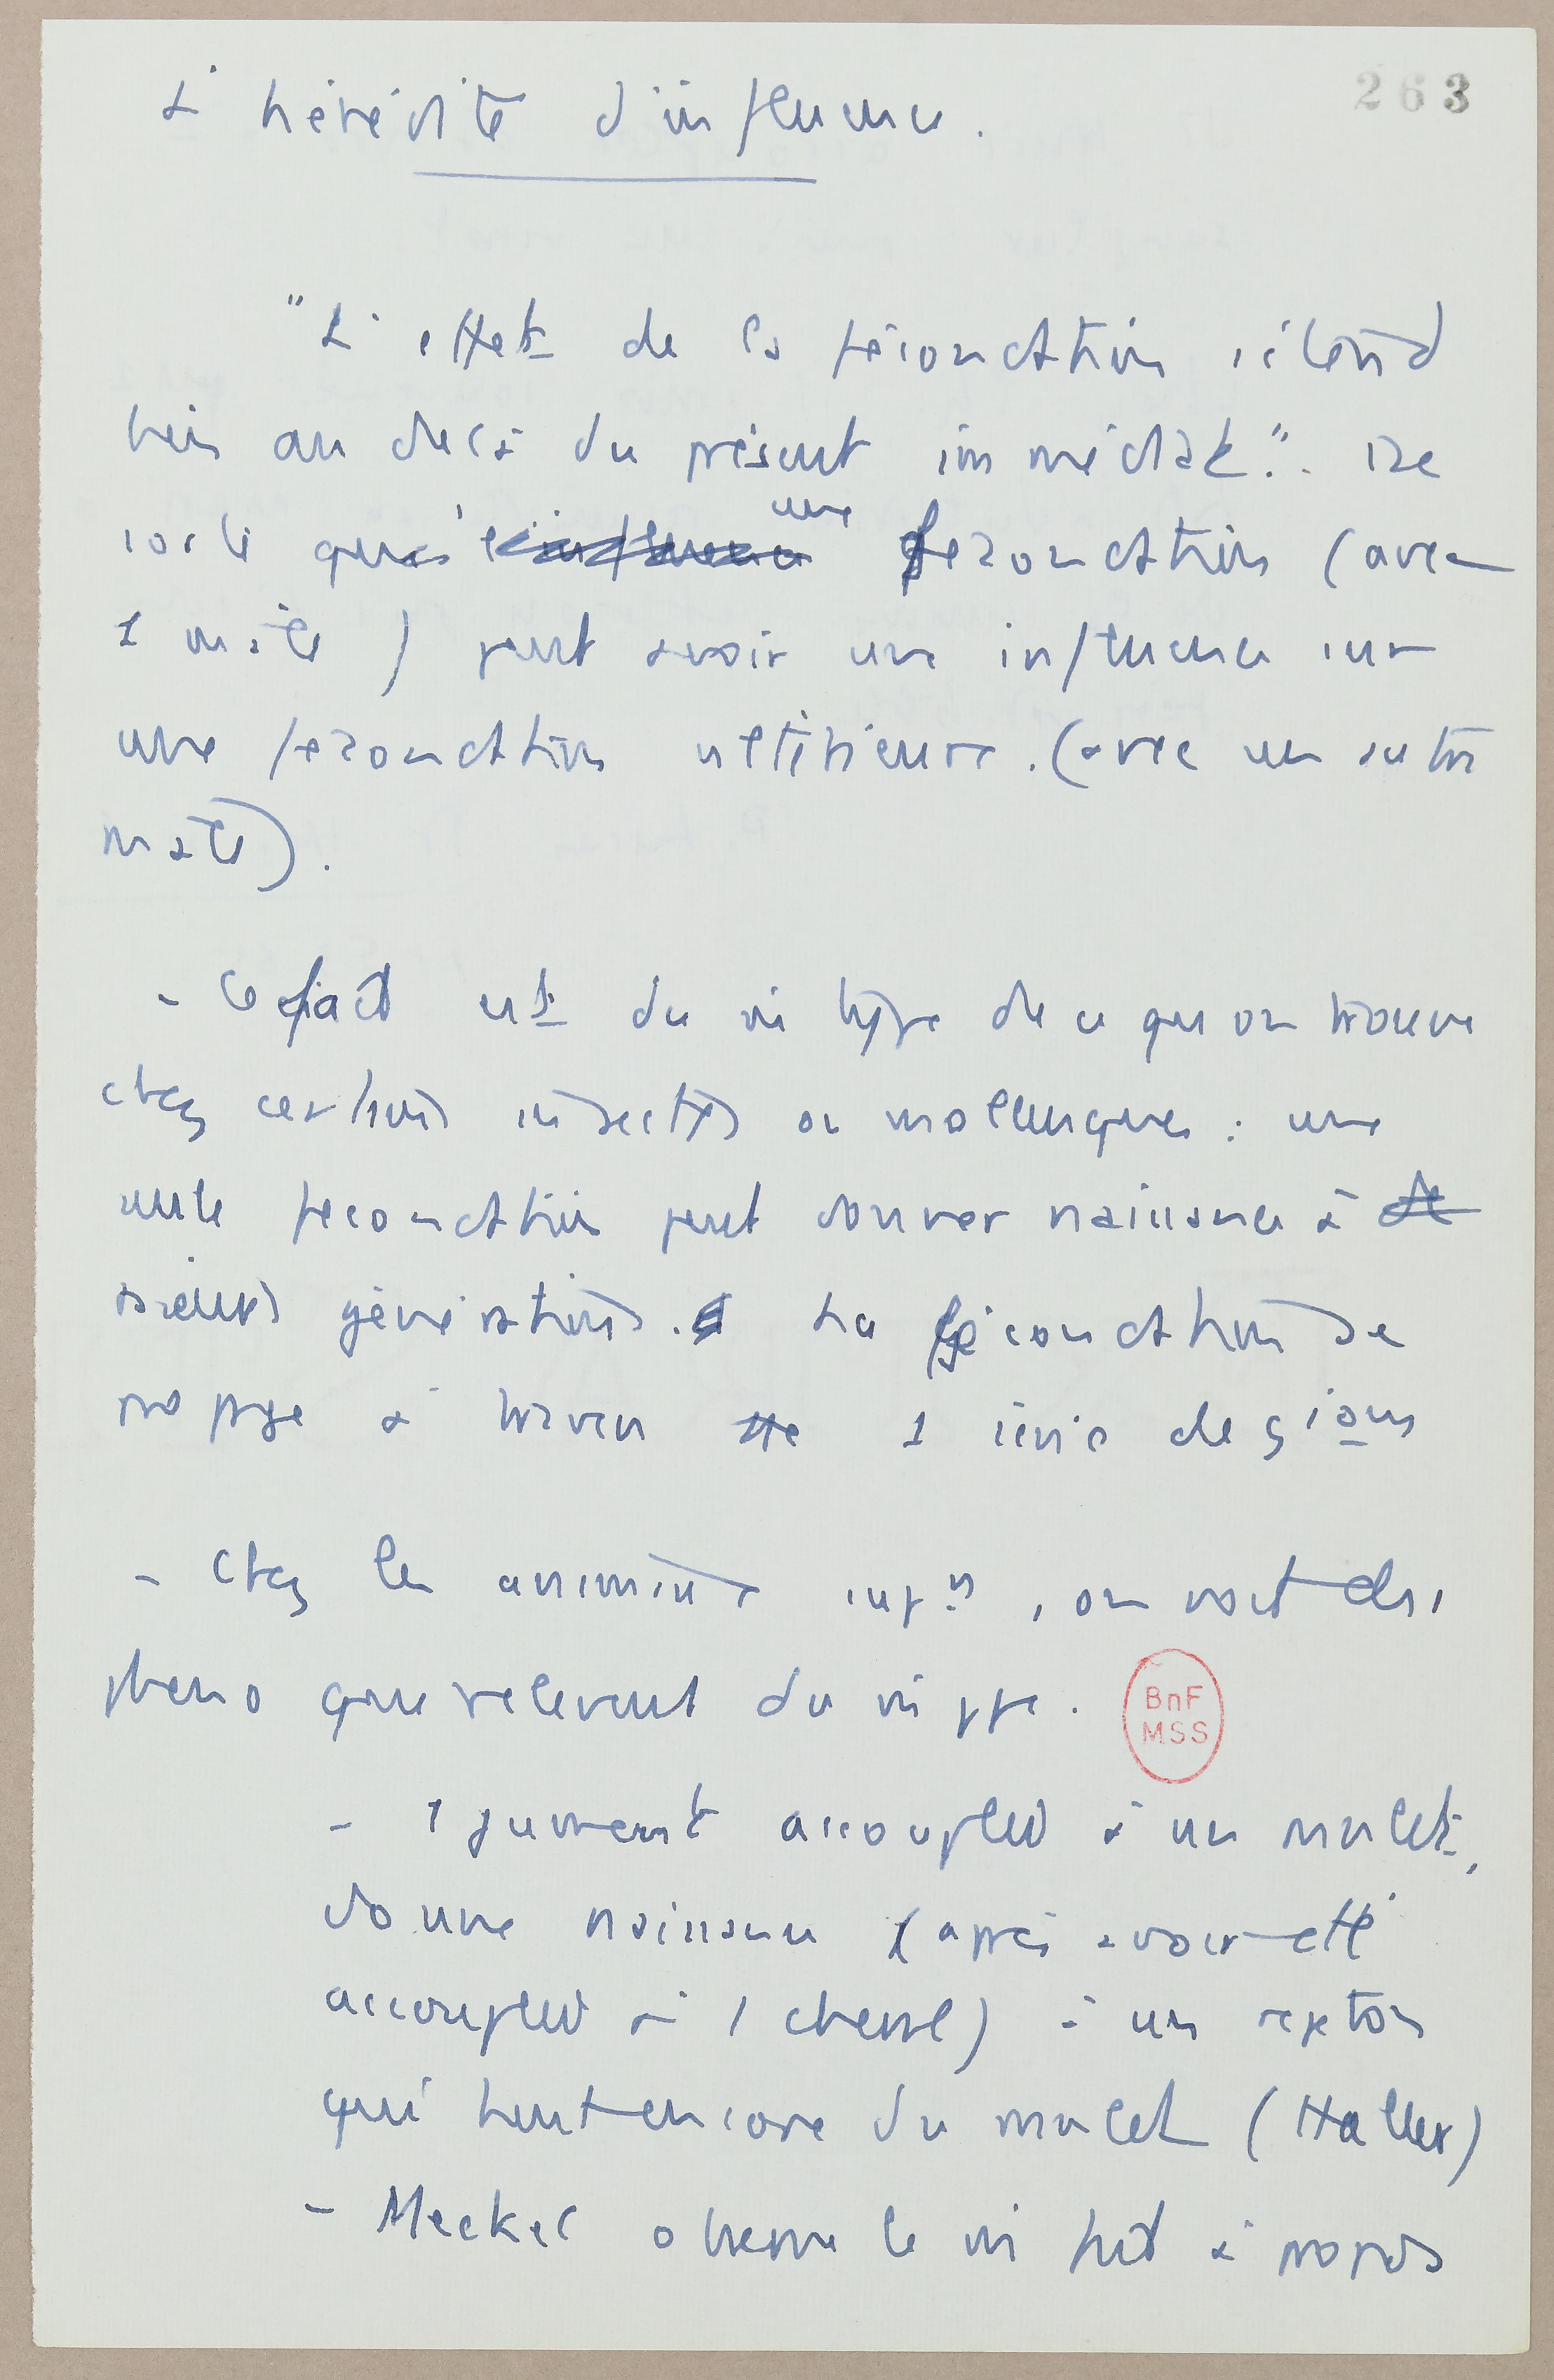 263
L'hérédité d'influence.
"L'effet de la fécondation s'étend
bien au delà du présent immédiat". De
sorte qu'une fécondation (avec
1 mâle) peut avoir une influence sur
une fécondation ultérieure. (avec un autre
mâle).
- Ce fait est du m type de ce qu'on trouve
chez certains insectes ou mollusques : une
seule fécondation peut donner naissance à
plusieurs générations. La fécondation se
propage à travers 1 série de gions
- Chez les animaux suprs, on voit des
pheno qui relevent du m ppe.
BnF
MSS
- 1 jument accouplée à un mulet,
donne naissance (après avoir été
accouplée à 1 cheval) à un rejeton
qui tient encore du mulet (Haller)
- Meckel observe le m fait à propos